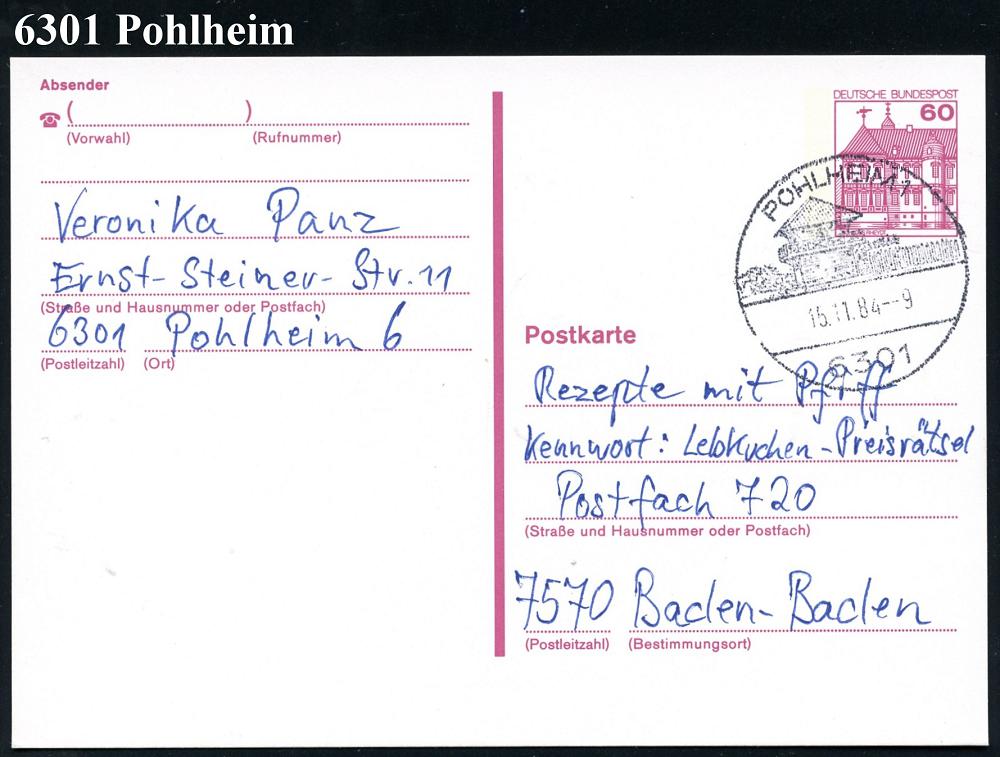 6301 Pohlheim
Absender
☎ ( )
(Vorwahl) (Rufnummer)
Veronika Panz
Ernst-Steiner-Str. 11
(Straße und Hausnummer oder Postfach)
6301 Pohlheim 6
(Postleitzahl) (Ort)
DEUTSCHE BUNDESPOST
60
POHLHEIM 1
15.11.84--9
6301
Postkarte
Rezepte mit Pfiff
Kennwort: Lebkuchen-Preisrätsel
Postfach 720
(Straße und Hausnummer oder Postfach)
7570 Baden-Baden
(Postleitzahl) (Bestimmungsort)